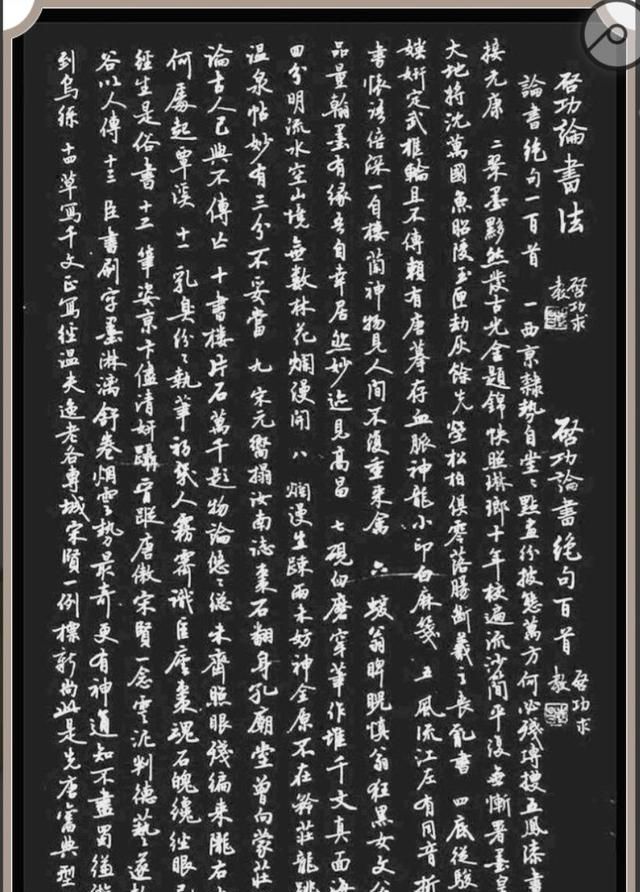 启功論書法 啓功求教
啓功論書绝句百首 啓功求教
論書绝句一百首 一西京隸勢自堂〻點畫紛披態萬方何必殘磚搜五鳳漆書
接元康 二翠墨黟然發古光金題錦帙照琳瑯十年校遍流沙簡平復無慚署墨皇
大地將沈萬國魚昭陵玉匣劫灰餘先塋松柏俱零落腸斷羲之喪亂書 四底從駿
媸妍定武椎輪且不傳賴有唐摹存血脈神龍小印白麻箋 五風流江左有同音折
書懷語倍深一自樓蘭神物見人間不復重來禽 六蝯翁睥睨慎翁狂黑女文公
品量翰墨有緣吾自幸居然妙迹見高昌 七硯臼磨穿筆作堆千文真面海
四分明流水空山境無數林花爛熳開 八爛漫生疎兩未妨神全原不在矜莊龍跳
温泉帖妙有三分不妥當 九宋元嚮搨汝南誌棗石翻身孔廟堂曾向蒙莊
論古人已與不傳亡 十書樓片石萬千題物論悠〻總未齊照眼殘編來隴右
何處起覃溪 十一乳臭紛〻執筆初幾人霧霽識匡廬棗魂石魄纔經眼
經生是俗書 十二筆姿京卞儘清妍躡晉蹤唐傲宋賢一念雲泥判德藝遂
谷以人傳 十三臣書刷字墨淋漓舒卷烟雲勢最奇更有神通知不盡蜀縑
到烏絲 十四草寫千文正寫經温夫逸老各專城宋賢一例標新尚此是先唐舊典型